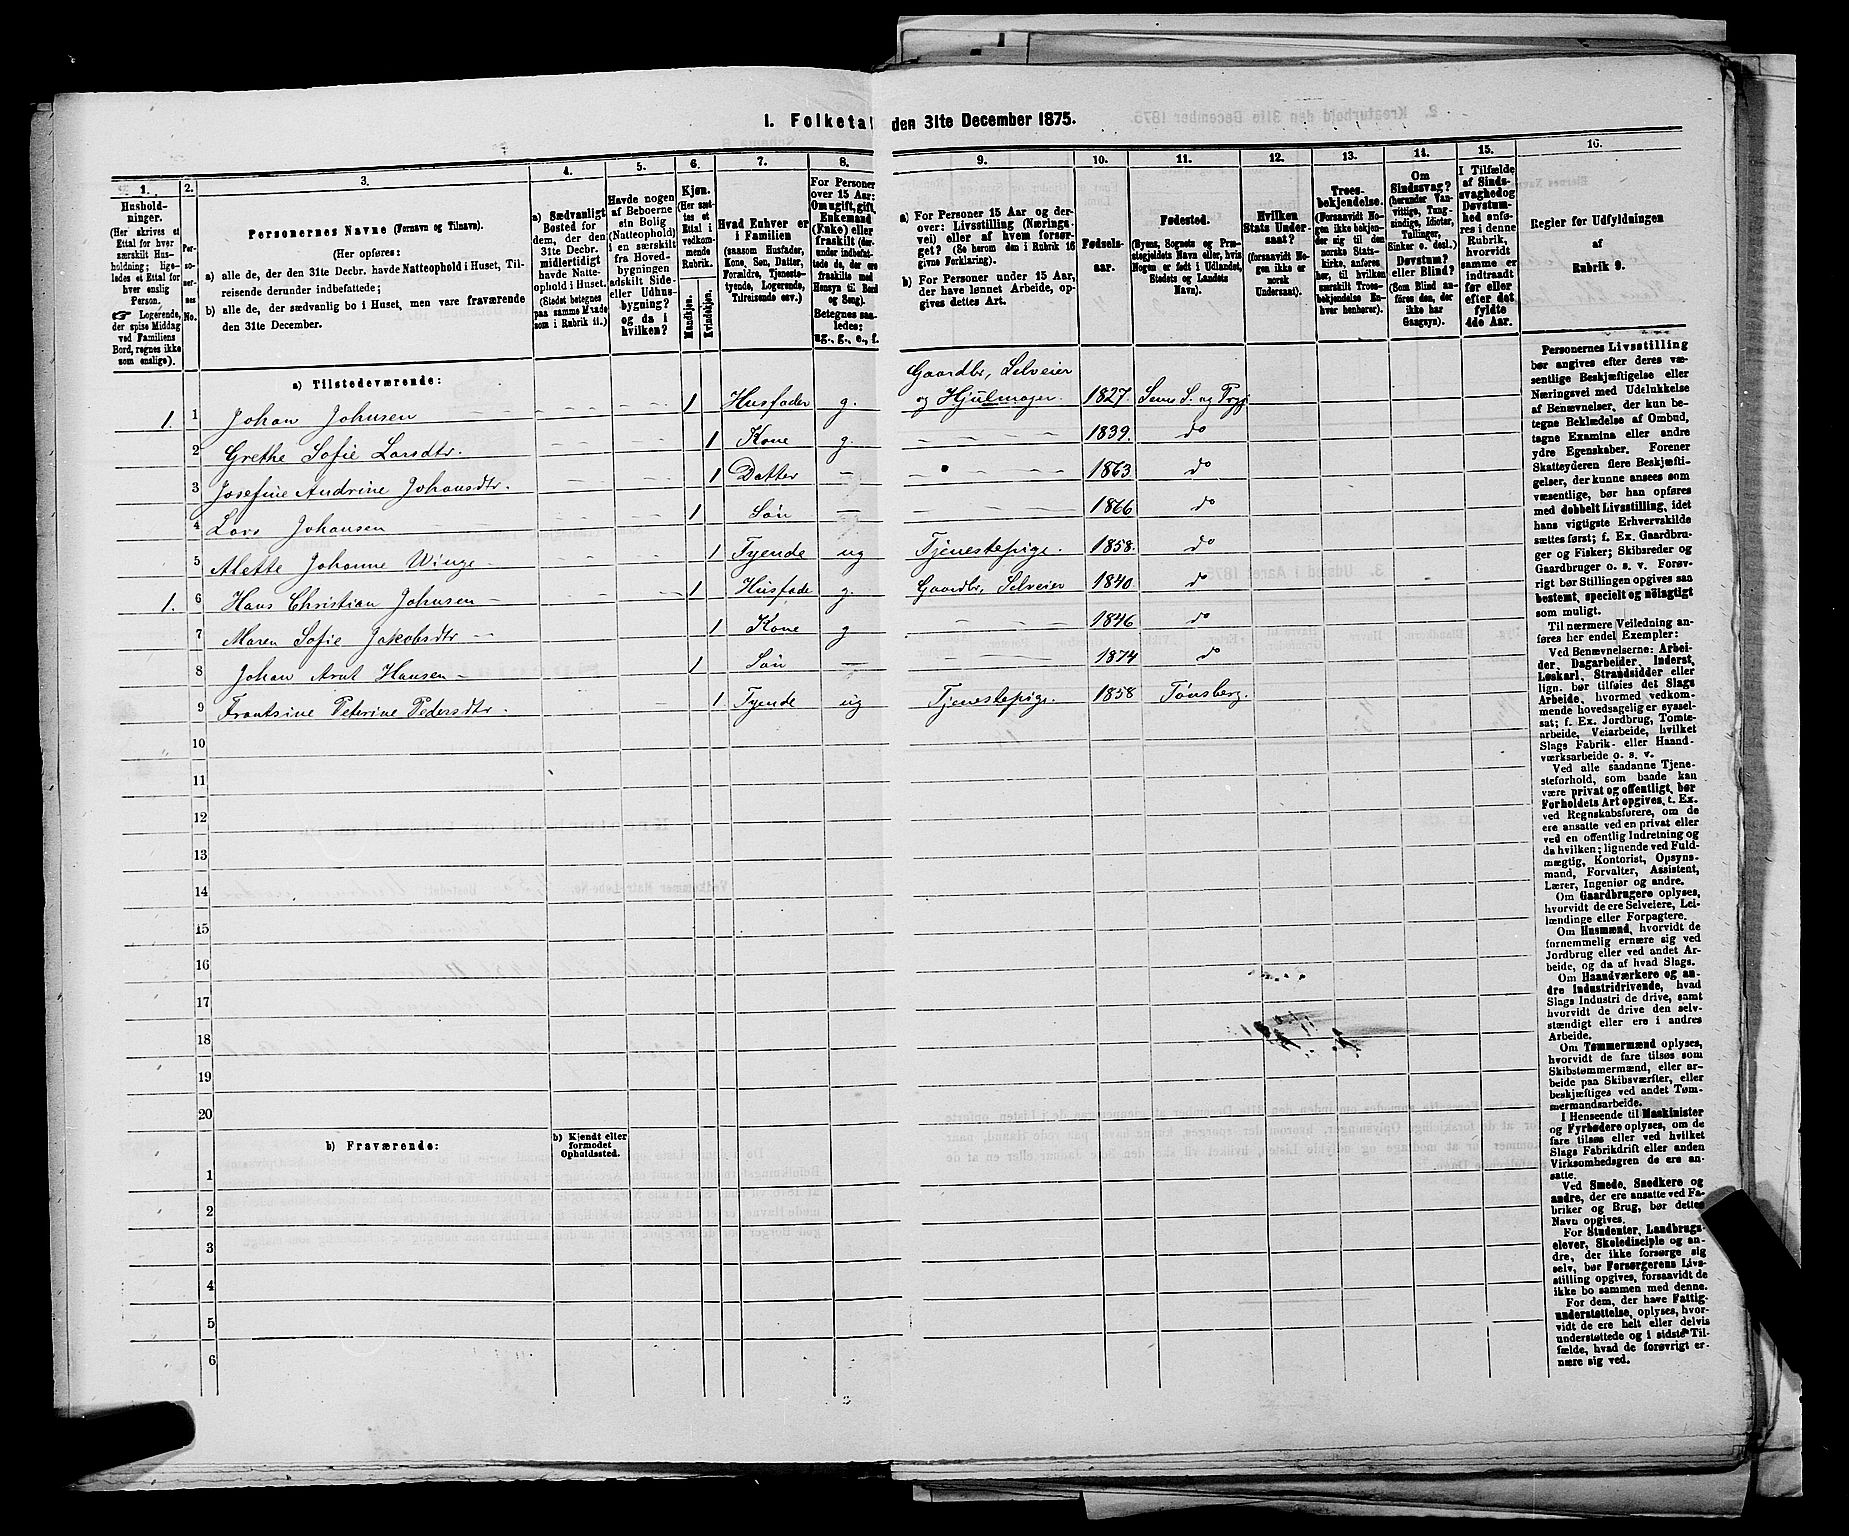 1. Folketal den 31te December 1875.
1. Husholdninger. (Her skrives et Ettal for hver særskilt Husholdning; ligeledes et Ettal for hver enslig Person. ☞ Logerende, der spise Middag ved Familiens Bord, regnes ikke som enslige).
2. Personernes No.
3. Personernes Navne (Fornavn og Tilnavn).
(Her opføres:
a) alle de, der den 31te Decbr. havde Natteophold i Huset, Tilreisende derunder indbefattede;
b) alle de, der sædvanlig bo i Huset, men vare fraværende den 31te December.
4. a) Sædvanligt Bosted for dem, der den 31te Decbr. midlertidigt havde Natteophold i Huset. (Stedet betegnes paa samme Maade som i Rubrik 11.)
5. Havde nogen af Beboerne sin Bolig (Natteophold) i en særskilt fra Hovedbygningen adskilt Side- eller Udhusbygning? og da i hvilken?
6. Kjøn. (Her sættes et Ettal i vedkommende Rubrik.) Mandkjøn. Kvindekjøn.
7. Hvad Enhver er i Familien (saasom Husfader, Kone, Søn, Datter, Forældre, Tjenestetyende, Logerende, Tilreisende osv.)
8. For Personer over 15 Aar: Om ugift, gift, Enkemand (Enke) eller fraskilt (derunder indbefattede de, der ere fraskilte med Hensyn til Bord og Seng). Betegnes saaledes: ug., g., e., f.
9. a) For Personer 15 Aar og derover: Livsstilling (Næringsvei) eller af hvem forsørget? (Se herom den i Rubrik 16 givne Forklaring).
b) For Personer under 15 Aar, der have lønnet Arbeide, opgives dettes Art.
10. Fødselsaar.
11. Fødested. (Byens, Sognets og Præstegjeldets Navn eller, hvis Nogen er født i Udlandet, Stedets og Landets Navn).
12. Hvilken Stats Undersaat? (forsaavidt Nogen ikke er norsk Undersaat).
13. Troesbekjendelse. (Forsaavidt Nogen ikke bekjender sig til den norske Statskirke, anføres her, til hvilken særskilt Troesbekjendelse Enhver henhører).
14. Om Sindssvag? (herunder Vanvittige, Tungsindige, Idioter, Tullinger, Sinker o. desl.) Døvstum? eller Blind? (Som Blind anføres den, der ikke har Gangsyn).
15. I Tilfælde af Sindssvaghed og Døvstumhed anføres i denne Rubrik, hvorvidt samme er indtraadt før eller efter det fyldte 4de Aar.
16. Regler for Udfyldningen af Rubrik 9.
a) Tilstedeværende:
1. 1 Johan Johnsen 1 Husfader g. Gaardbr, Selveier og Hjulmager. 1827. Sems S. og
2 Grethe Sofie Larsdtr. 1 Kone g. 1839. do
3 Josefine Andrine Johansdtr. 1 Datter 1863 do
4 Lars Johansen 1 Søn 1866 do
5 Alette Johanne Winge 1 Tyende ug Tjenestepige. 1858. do
1. 6 Hans Christian Johnsen 1 Husfade g. Gaardbr, Selveier 1840 do
7 Maren Sofie Jakobsdtr 1 Kone g 1846 do
8 Johan Arnt Hansen 1 Søn 1874 do
9 Frantsine Peterine Pedersdtr. 1 Tyende ug Tjenestepige. 1858 Tønsberg.
10
11
12
13
14
15
16
17
18
19
20
b) Fraværende:
b) Kjendt eller formodet Opholdssted.
1
2
3
4
5
6
Personernes Livsstilling
bør angives efter deres væ-
sentlige Beskjæftigelse eller
Næringsvei med Udelukkelse
af Benævnelser, der kun be-
tegne Beklædelse af Ombud,
tagne Examina eller andre
ydre Egenskaber. Forener
Skatteyderen flere Beskjæfti-
gelser, der kunne ansees som
væsentlige, bør han opføres
med dobbelt Livsstilling, idet
hans vigtigste Erhvervskilde
sættes først; f. Ex. Gaardbru-
ger og Fisker; Skibsreder og
Gaardbruger o. s. v. Forøv-
rigt bør Stillingen opgives saa
bestemt, specielt og nøiagtigt
som muligt.
Til nærmere Veiledning an-
føres her endel Exempler:
Ved Benævnelserne: Arbei-
der, Dagarbeider, Inderst,
Løskarl, Strandsidder eller
lign. bør tilføies det Slags
Arbeide, hvormed vedkom-
mende hovedsagelig er syssel-
sat; f. Ex. Jordbrug, Tomte-
arbeide, Veiarbeide, hvilket
Slags Fabrik- eller Haand-
værksarbeide o. s. v.
Ved alle saadanne Tjene-
steforhold, som baade kan
være privat og offentligt, bør
Forholdets Art opgives, t. Ex.
ved Regnskabsførere, om de
ere ansatte ved en privat eller
ved en offentlig Indretning og
da hvilken; lignende ved Fuld-
mægtig, Kontorist, Opsyns-
mand, Forvalter, Assistent,
Lærer, Ingeniør og andre.
Om Gaardbrugere oplyses,
hvorvidt de ere Selveiere, Lei-
lændinge eller Forpagtere.
Om Husmænd, hvorvidt de
fornemmelig ernære sig ved
Jordbrug eller ved andet Ar-
beide, og da af hvad Slags.
Om Haandværkere og an-
dre Industridrivende, hvad
Slags Industri de drive, samt
hvorvidt de drive den selv-
stændigt eller ere i andres
Arbeide.
Om Tømmermænd oplyses,
hvorvidt de fare tilsøs som
Skibstømmermænd, eller ar-
beide paa Skibsværfter, eller
beskjæftiges ved andet Tøm-
mermandsarbeide.
I Henseende til Maskinister
og Fyrbødere oplyses, om de
fare tilsøs eller ved hvilket
Slags Fabrikdrift eller anden
Virksomhedsgren de ere an-
satte.
Ved Smede, Snedkere og
andre, der ere ansatte ved Fa-
briker og Brug, bør dettes
Navn opgives.
For Studenter, Landbrugs-
elever, Skoledisciple og an-
dre, der ikke forsørge sig
selv, bør Forsørgerens Livs-
stilling opgives, forsaavidt de
ikke bo sammen med denne.
For dem, der have Fattig-
understøttelse, oplyses, hvor-
vidt de ere helt eller delvis
understøttede og i sidste Til-
fælde, hvad de forøvrigt er-
nære sig ved.